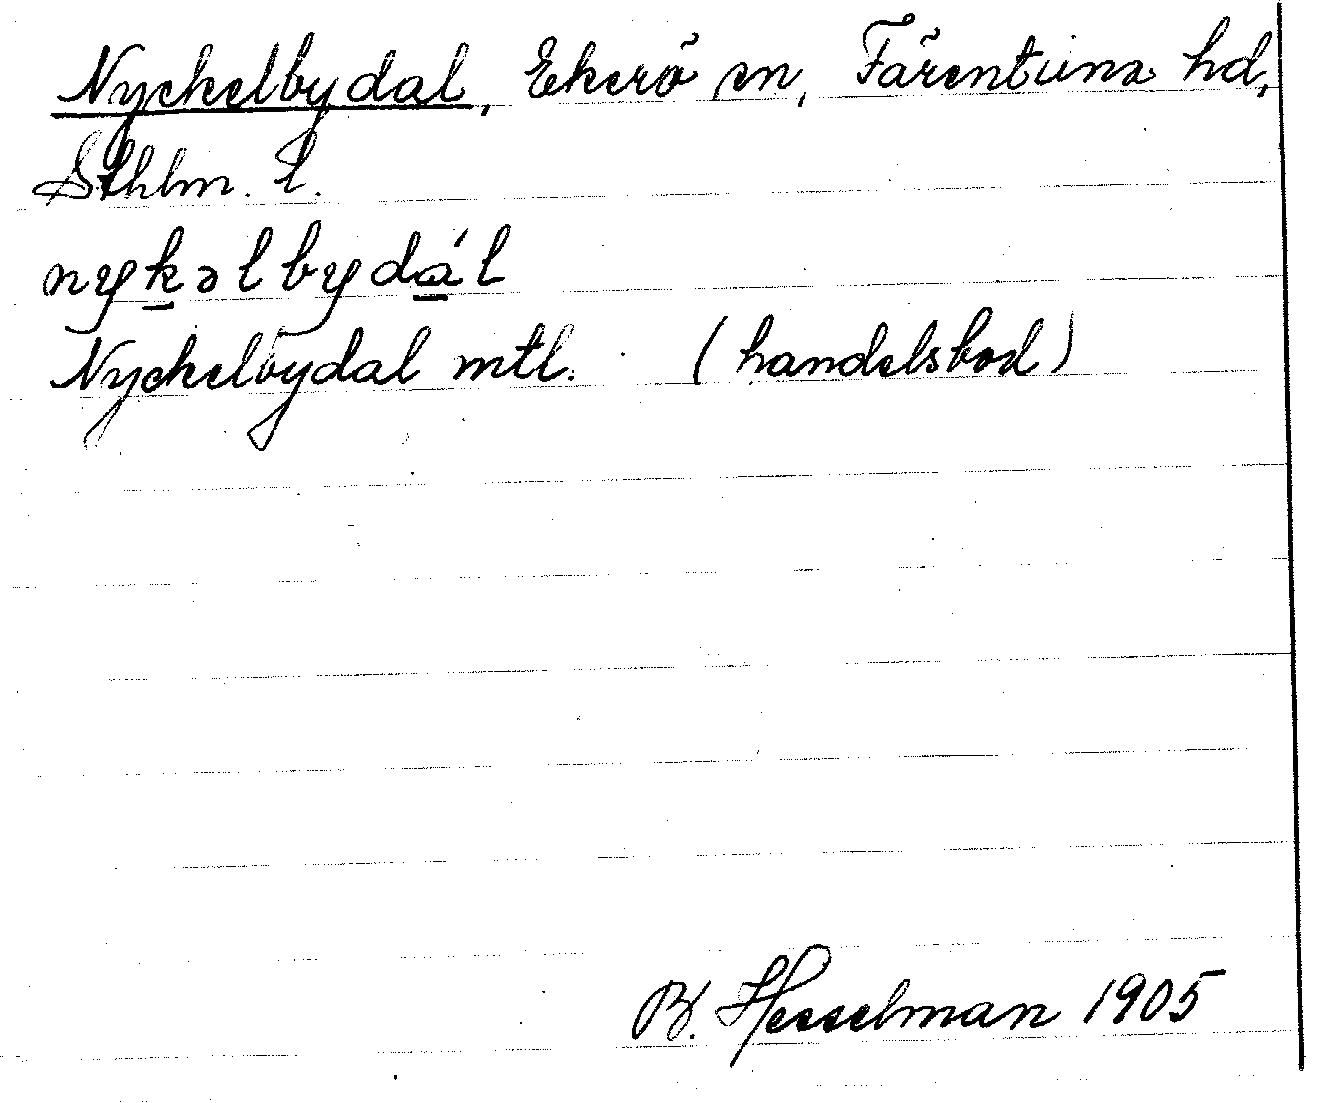 Nyckelbydal, Ekerö sn, Färentuna hd,
Sthlm. l.
nyk̲əlbydá̲l
Nyckelbydal mtl. (handelsbod)
B. Hesselman 1905